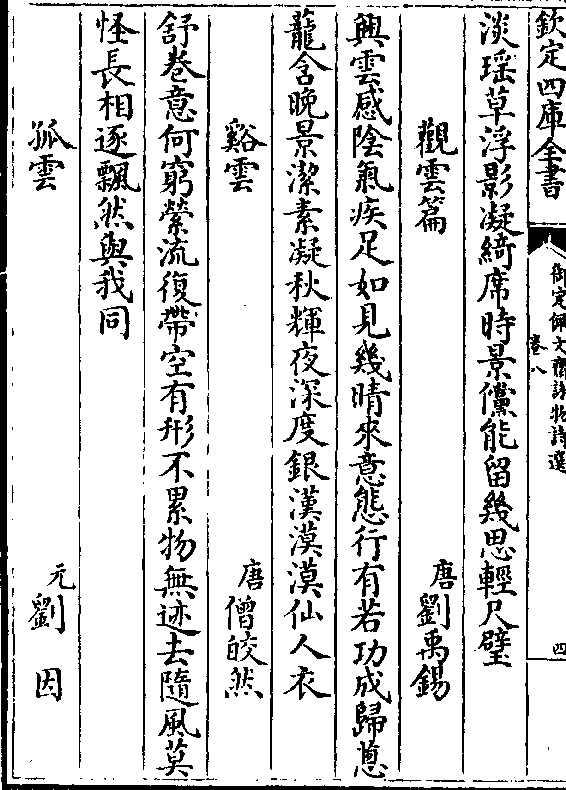 欽定四庫全書
御定佩文齋詠物詩選
卷八
四
淡瑶草浮影凝綺席時景儻能留幾思輕尺璧
觀雲篇
唐劉禹錫
興雲感陰氣疾足如見幾晴來意態行有若功成歸蔥
蘢含晚景潔素凝秋輝夜深度銀漢漠漠仙人衣
谿雲
唐僧皎然
舒卷意何窮縈流復帶空有形不累物無迹去隨風莫
怪長相逐飄然與我同
孤雲
元劉因